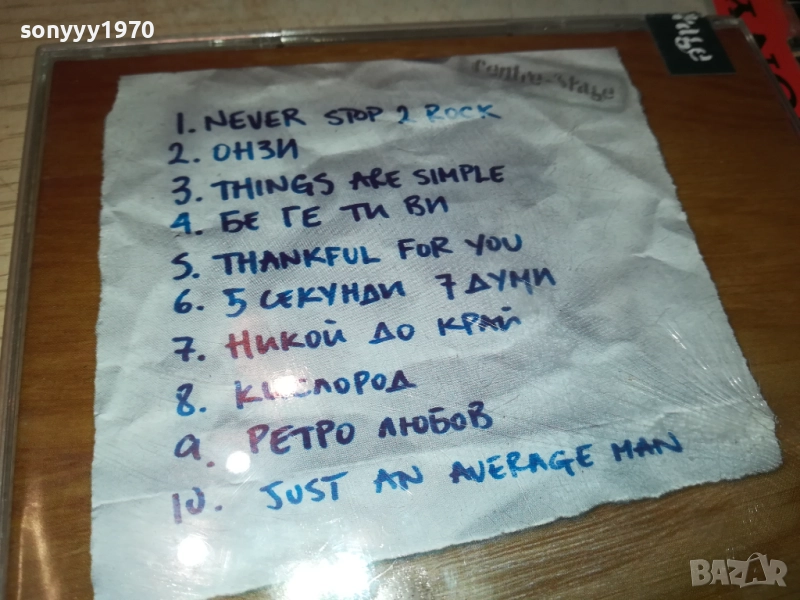 sonyyy1970
Centre-Stage
1. NEVER STOP 2 ROCK
2. ОНЗИ
3. THINGS ARE SIMPLE
4. БЕ ГЕ ТИ ВИ
5. THANKFUL FOR YOU
6. 5 СЕКУНДИ 7 ДУМИ
7. НИКОЙ ДО КРАЙ
8. КИСЛОРОД
9. РЕТРО ЛЮБОВ
10. JUST AN AVERAGE MAN
BAZAR